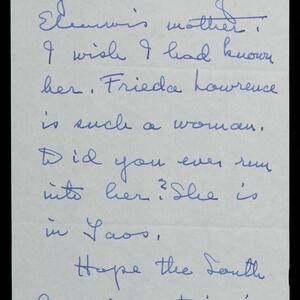 mother.
I wish I had known
her. Frieda Lawrence
is such a woman.
Did you ever run
into her? She is
in Taos.
Hope the South